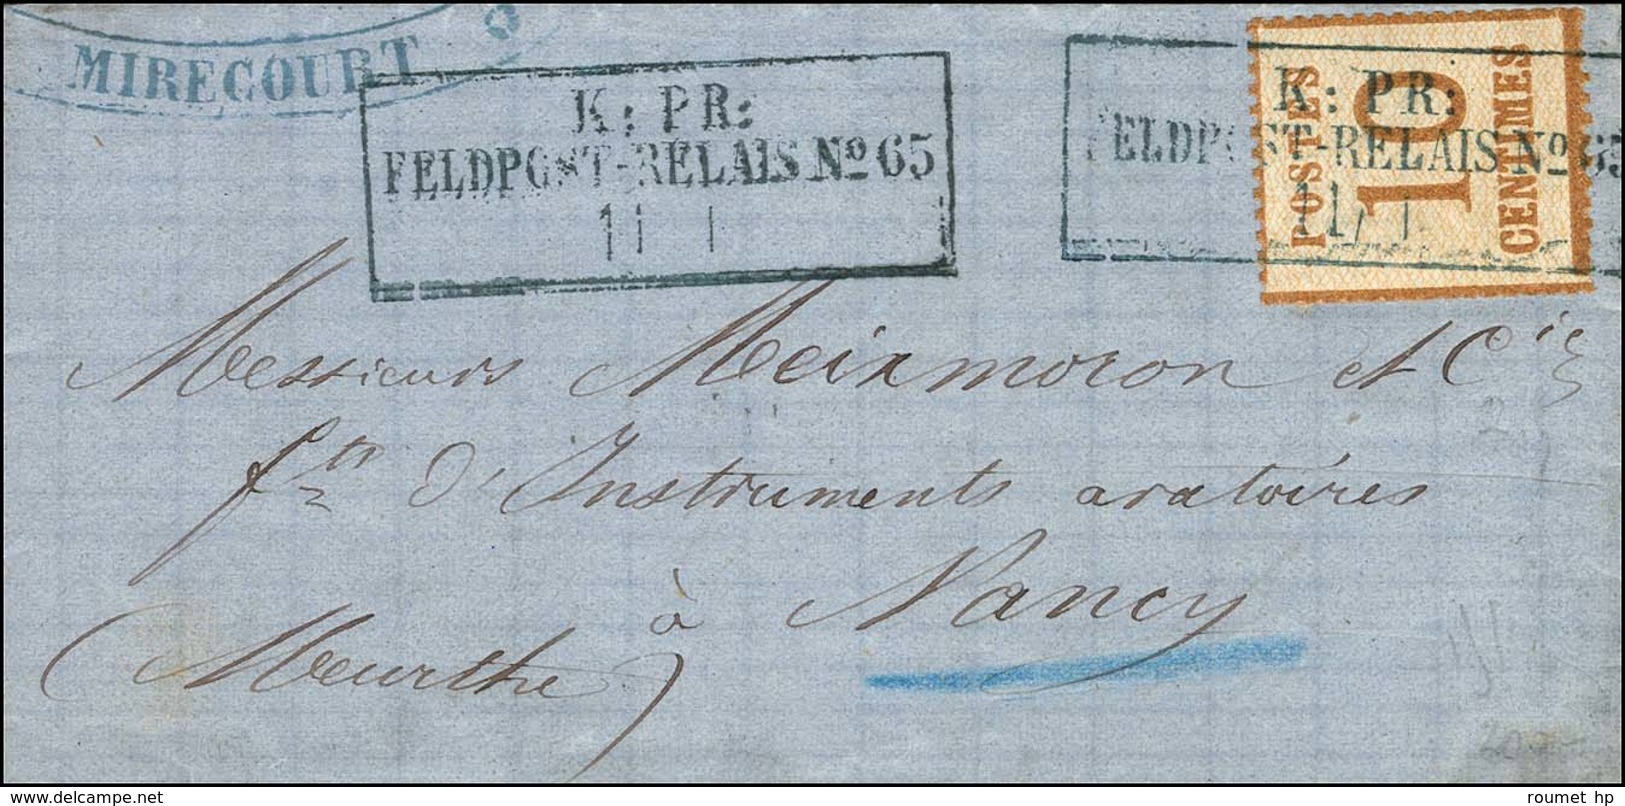 MIRECOURT
K: PR:
FELDPOST-RELAIS No 65
11 1
K: PR:
FELDPOST-RELAIS No 65
11/1
POSTES
10
CENTIMES
Messieurs Meixmoron et Cie
fts d'Instruments aratoires
à Nancy
(Meurthe)
roumet hp